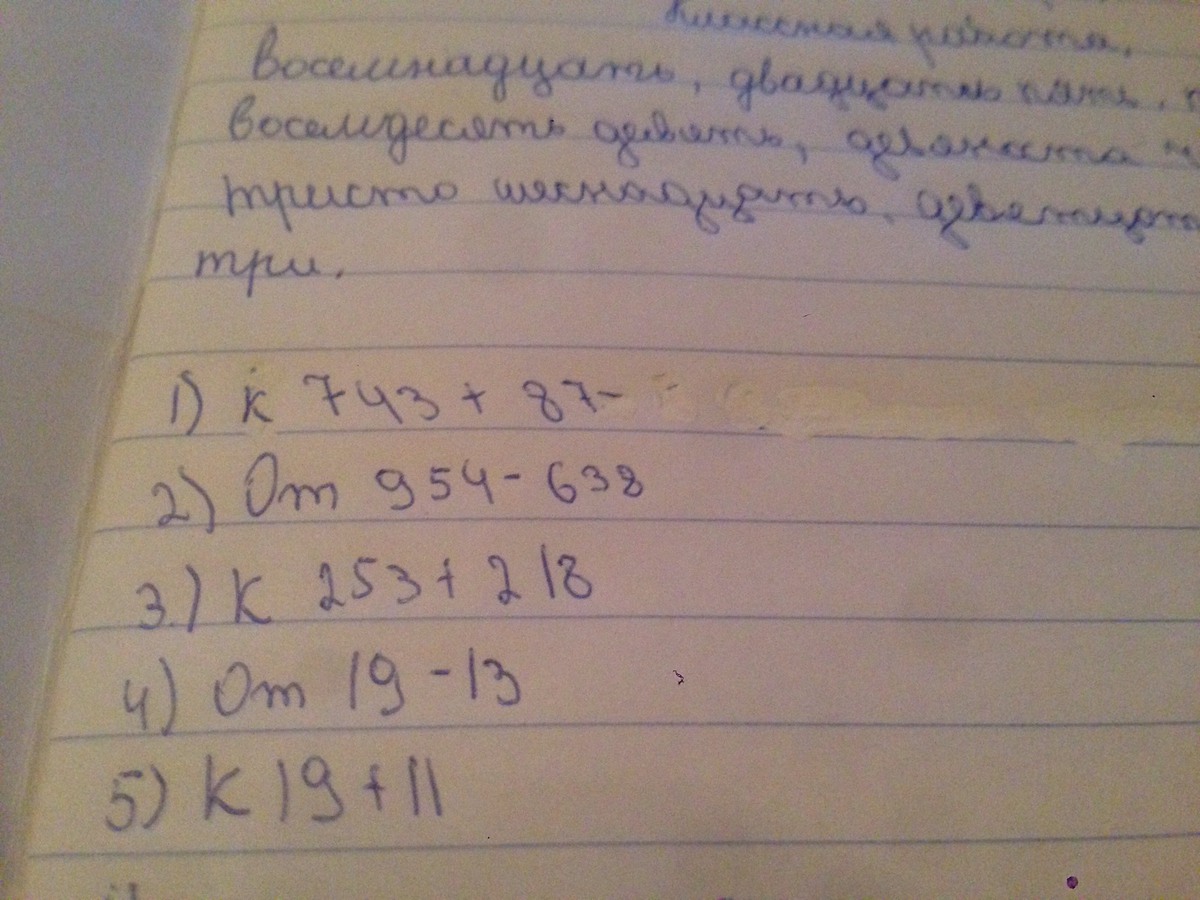 Классная работа.
Восемнадцать, двадцать пять,
восемдесять девять, девяноста
тристо шеснадцать, девятьсот
три.
1) к 743 + 87-
2) От 954 - 638
3.) К 253 + 218
4) От 19 - 13
5) К 19 + 11